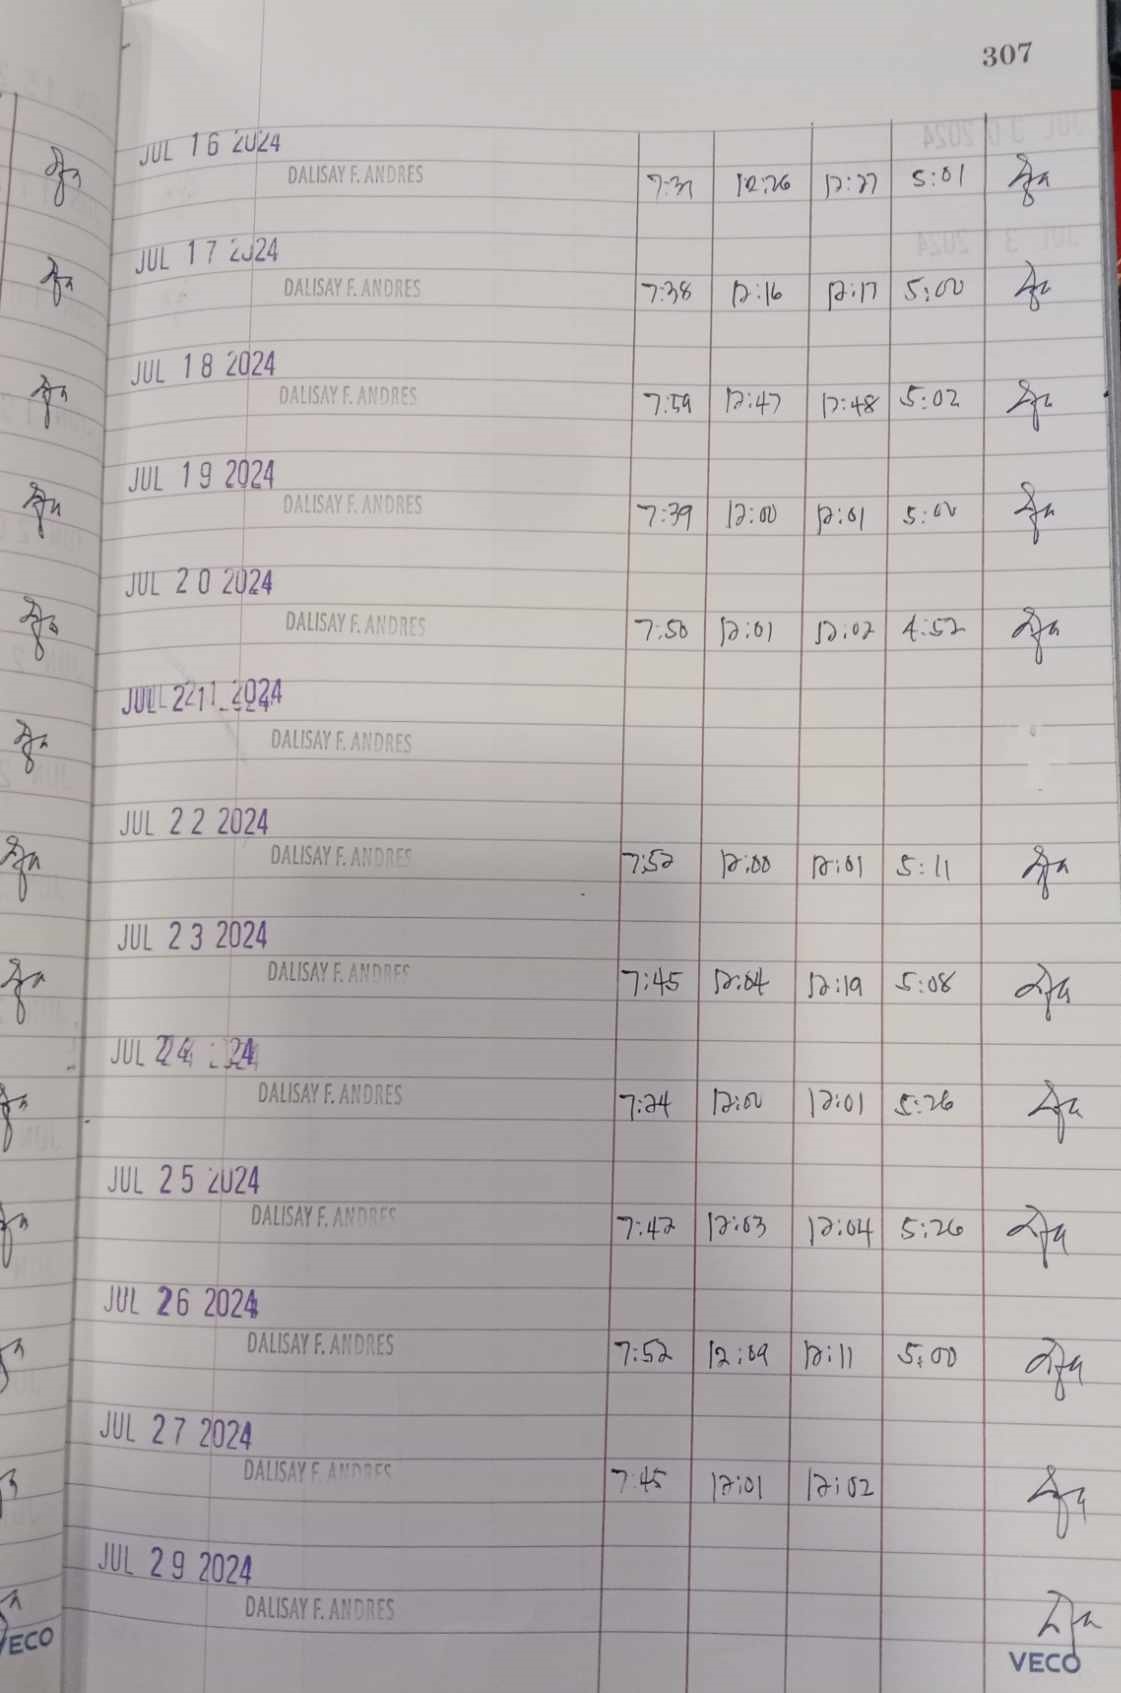 307
JUL 16 2024
DALISAY F. ANDRES 7:31 12:26 12:27 5:01
JUL 17 2024
DALISAY F. ANDRES 7:38 12:16 12:17 5:00
JUL 18 2024
DALISAY F. ANDRES 7:59 12:47 12:48 5:02
JUL 19 2024
DALISAY F. ANDRES 7:39 12:00 12:01 5:00
JUL 20 2024
DALISAY F. ANDRES 7:50 12:01 12:02 4:52
JUL 21 2024
DALISAY F. ANDRES
JUL 22 2024
DALISAY F. ANDRES 7:52 12:00 12:01 5:11
JUL 23 2024
DALISAY F. ANDRES 7:45 12:04 12:19 5:08
JUL 24 2024
DALISAY F. ANDRES 7:24 12:00 12:01 5:26
JUL 25 2024
DALISAY F. ANDRES 7:42 12:03 12:04 5:26
JUL 26 2024
DALISAY F. ANDRES 7:52 12:09 12:11 5:00
JUL 27 2024
DALISAY F. ANDRES 7:45 12:01 12:02
JUL 29 2024
DALISAY F. ANDRES
VECO
VECO